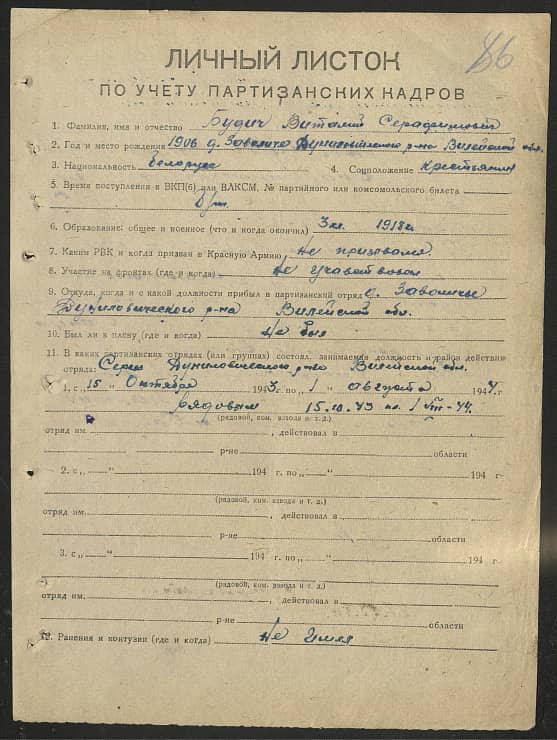 86
ЛИЧНЫЙ ЛИСТОК
ПО УЧЕТУ ПАРТИЗАНСКИХ КАДРОВ
1. Фамилия, имя и отчество Будич Виталий Серафимович
2. Год и место рождения 1906 д. Дуниловичского р-на Вилейской обл.
3. Национальность белорус 4. Соцположение крестьянин
5. Время поступления в ВКП(б) или ВЛКСМ, № партийного или комсомольского билета
б/п
6. Образование: общее и военное (что и когда окончил) 3 кл. 1918г.
7. Каким РВК и когда призван в Красную Армию не призвался
8. Участие на фронтах (где и когда) не участвовал
9. Откуда, когда и с какой должности прибыл в партизанский отряд д.
Дуниловичского р-на Вилейской обл.
10. Был ли в плену (где и когда) не был
11. В каких партизанских отрядах (или группах) состоял, занимаемая должность и район действия
отряда: Дуниловичского р-на Вилейской обл.
1. с „15 " Октября 1943 г. по „1 " августа 1944 г.
рядовым 15.10.43 по 1 VIII-44.
(рядовой, ком. взвода и т. д.)
отряд им. , действовал в
р-не области
2. с „ " 194 г. по „ " 194 г.
(рядовой, ком. взвода и т. д.)
отряд им. , действовал в
р-не области
3. с „ " 194 г. по „ " 194 г.
(рядовой, ком. взвода и т. д.)
отряд им. , действовал в
р-не области
12. Ранения и контузии (где и когда) не имел